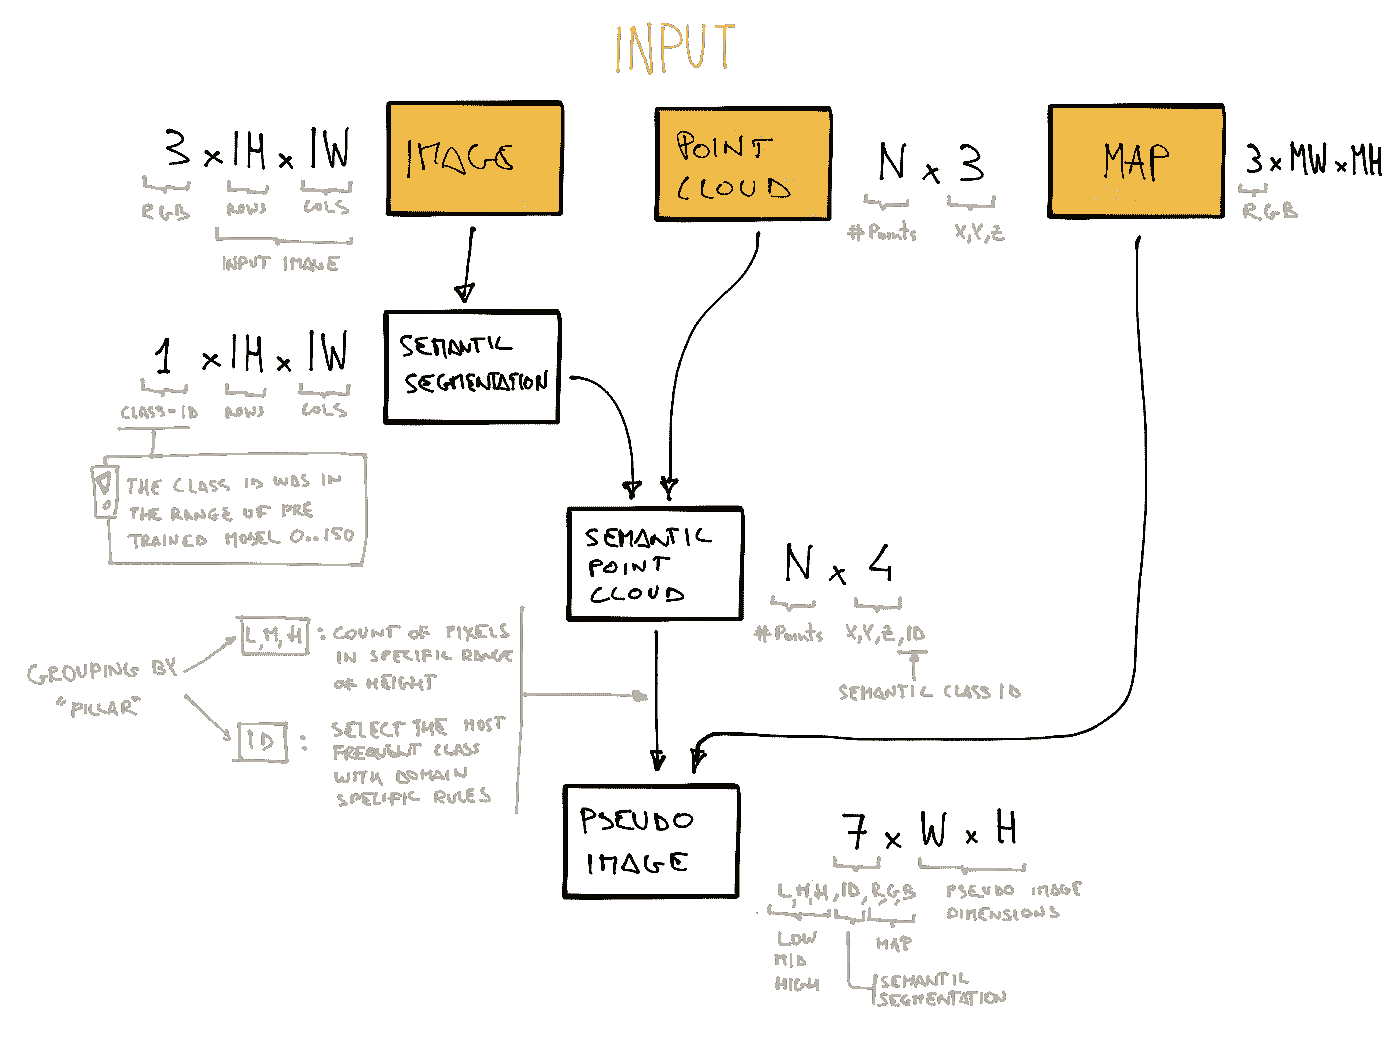 INPUT
3 x IH x IW
RGB ROWS COLS
INPUT IMAGE
IMAGE
POINT
CLOUD
N x 3
#Points X,Y,Z
MAP
3 x MW x MH
RGB
1 x IH x IW
CLASS-ID ROWS COLS
THE CLASS ID WAS IN
THE RANGE OF PRE
TRAINED MODEL 0..150
SEMANTIC
SEGMENTATION
SEMANTIC
POINT
CLOUD
N x 4
#Points X,Y,Z,ID
SEMANTIC CLASS ID
GROUPING BY
"PILLAR"
L,M,H : COUNT OF PIXELS
IN SPECIFIC RANGE
OF HEIGHT
ID : SELECT THE MOST
FREQUENT CLASS
WITH DOMAIN
SPECIFIC RULES
PSEUDO
IMAGE
7 x W x H
L,M,H,ID,R,G,B
PSEUDO IMAGE
DIMENSIONS
LOW
MID
HIGH
MAP
SEMANTIC
SEGMENTATION